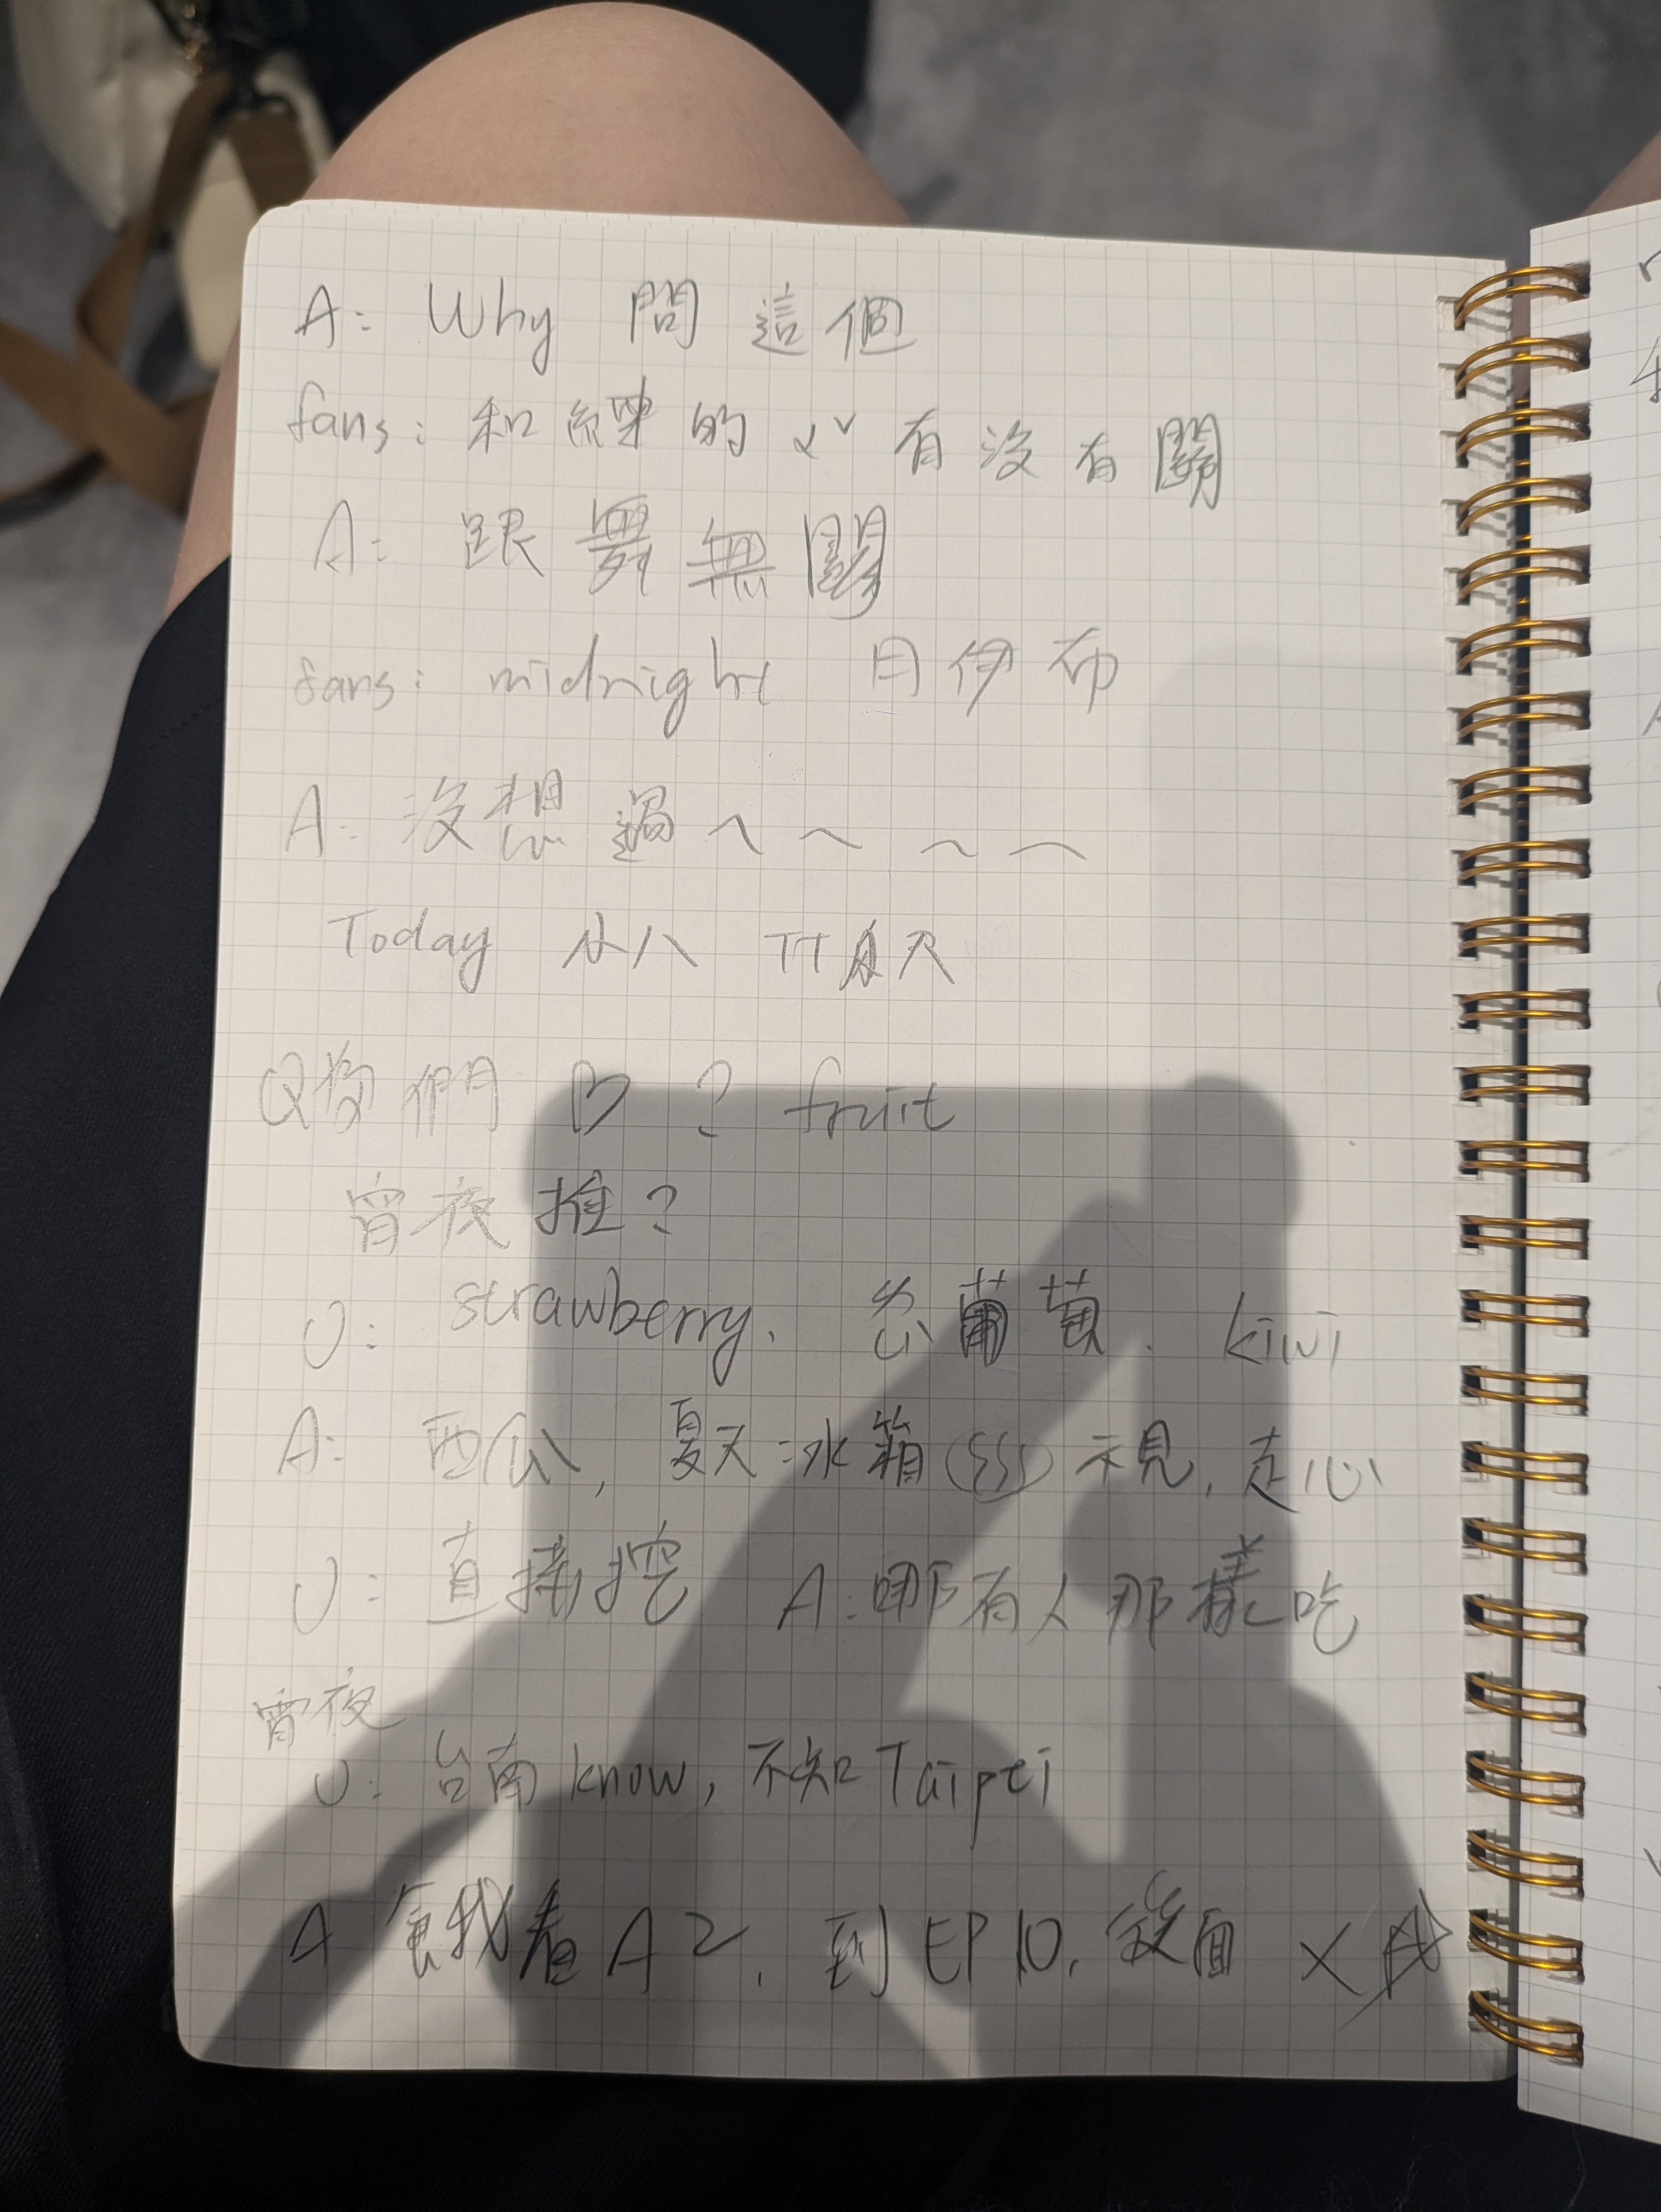 A: Why 問這個
fans: 和練的ㄨˇ有沒有關
A: 跟舞無關
fans: midnight 月伊布
A: 沒想過～～～～
Today 小八
Q 你們 ♡ ? fruit
宵夜推?
U: strawberry. 葡萄. kiwi
A: 西瓜, 夏天冰箱 視, 走心
U: 直接挖 A: 哪有人那樣吃
宵夜
U: 台南 know, 不知 Taipei
A 會我看 A2, 到 EP10, 後面 X